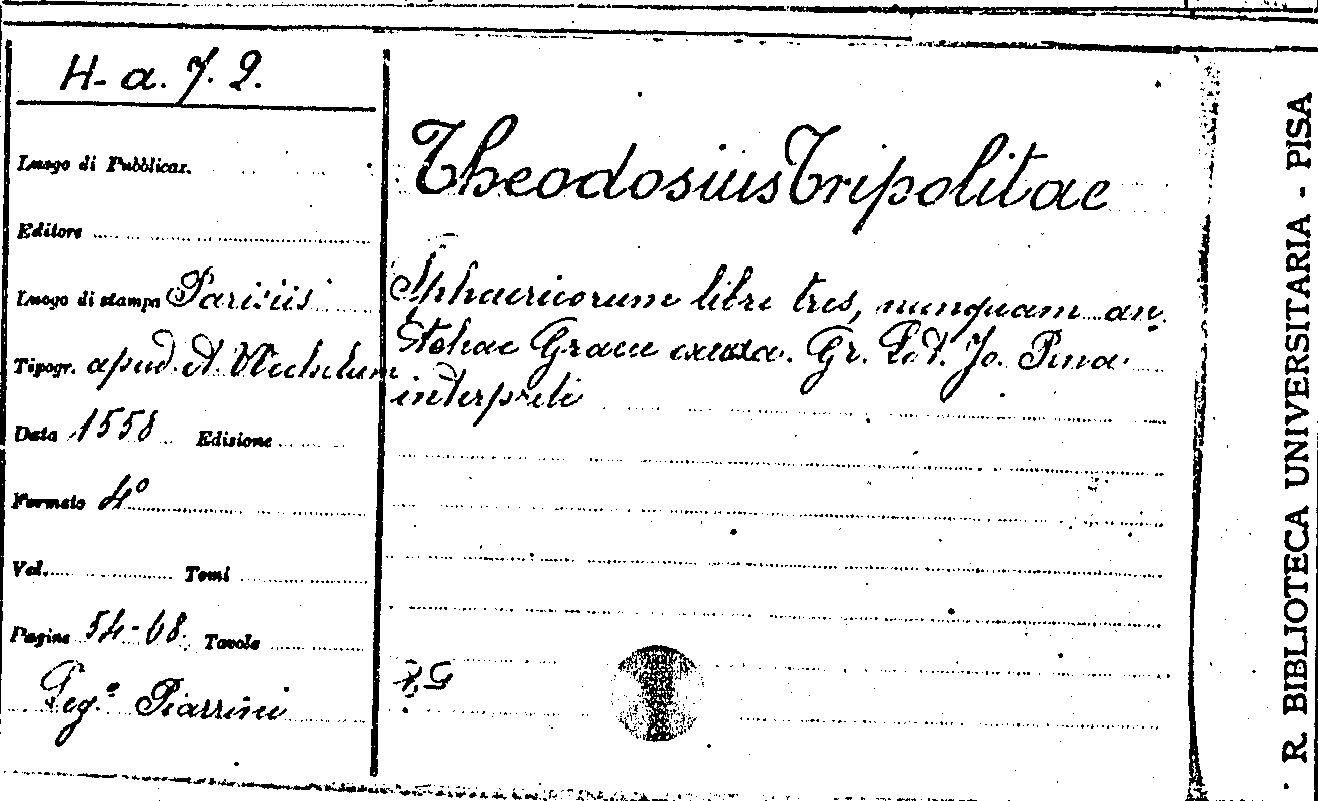 H. a. 7. 2.
Luogo di Pubblicaz.
Editore
Luogo di stampa Parisiis
Tipogr. apud A. Wechelum
Data 1558 Edizione
Formato 4º
Vol. Tomi
Pagine 54-68. Tavole
Leg.ª Piarrini
Theodosius Tripolitae
Sphaericorum libri tres, nunquam an
tehac Graece excusa. Gr. Lat. Jo. Pena
interprete
R. BIBLIOTECA UNIVERSITARIA - PISA